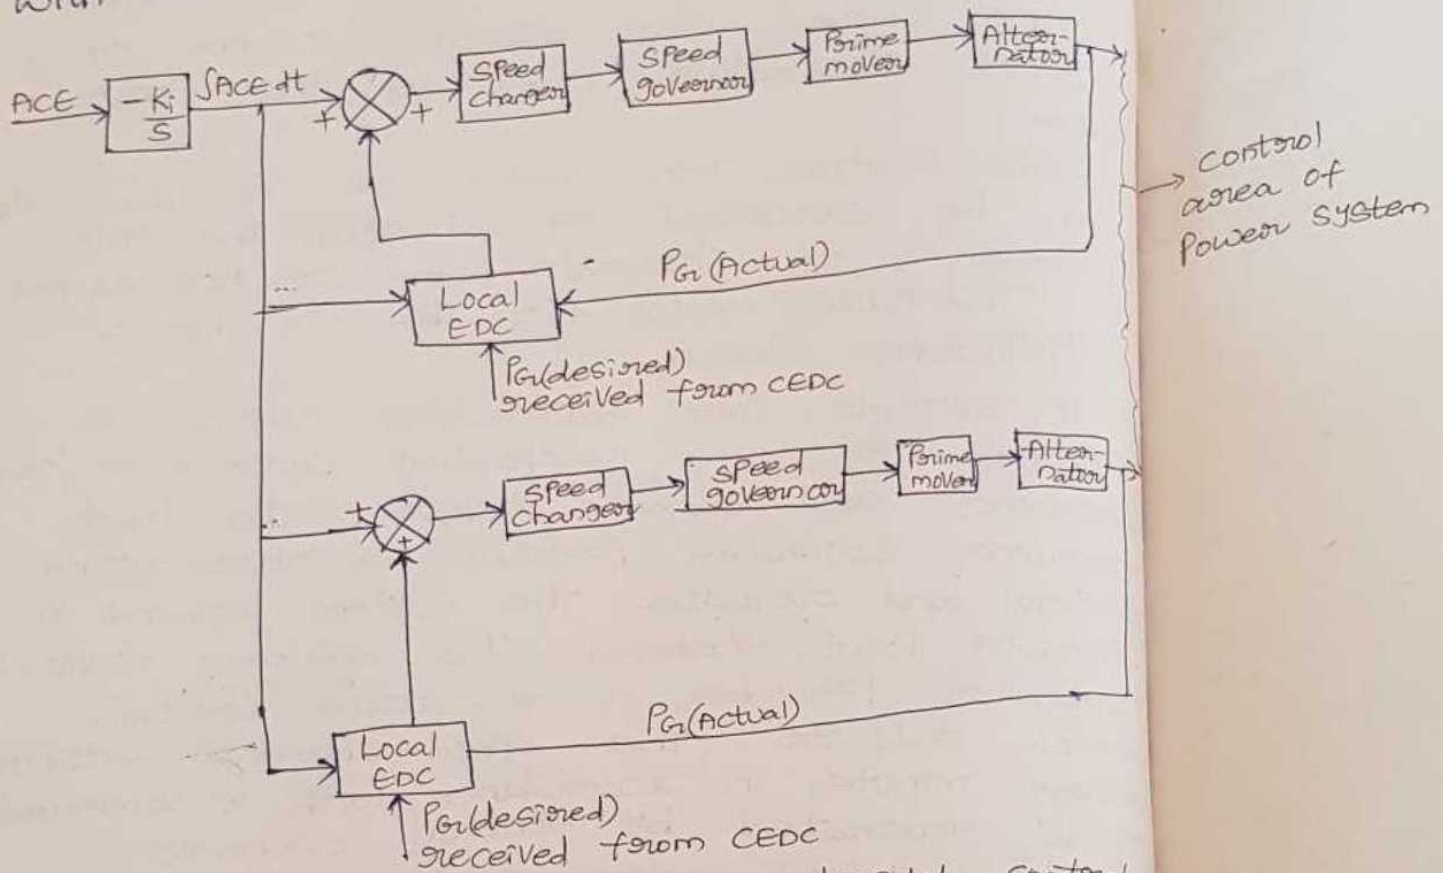 ACE
-Ki
S
∫ACE dt
+
+
Speed
changer
Speed
governor
Prime
mover
Alter-
nator
control
area of
Power system
PG(Actual)
Local
EDC
PG(desired)
received from CEDC
+
+
Speed
changer
Speed
governor
Prime
mover
Alter-
nator
PG(Actual)
Local
EDC
PG(desired)
received from CEDC